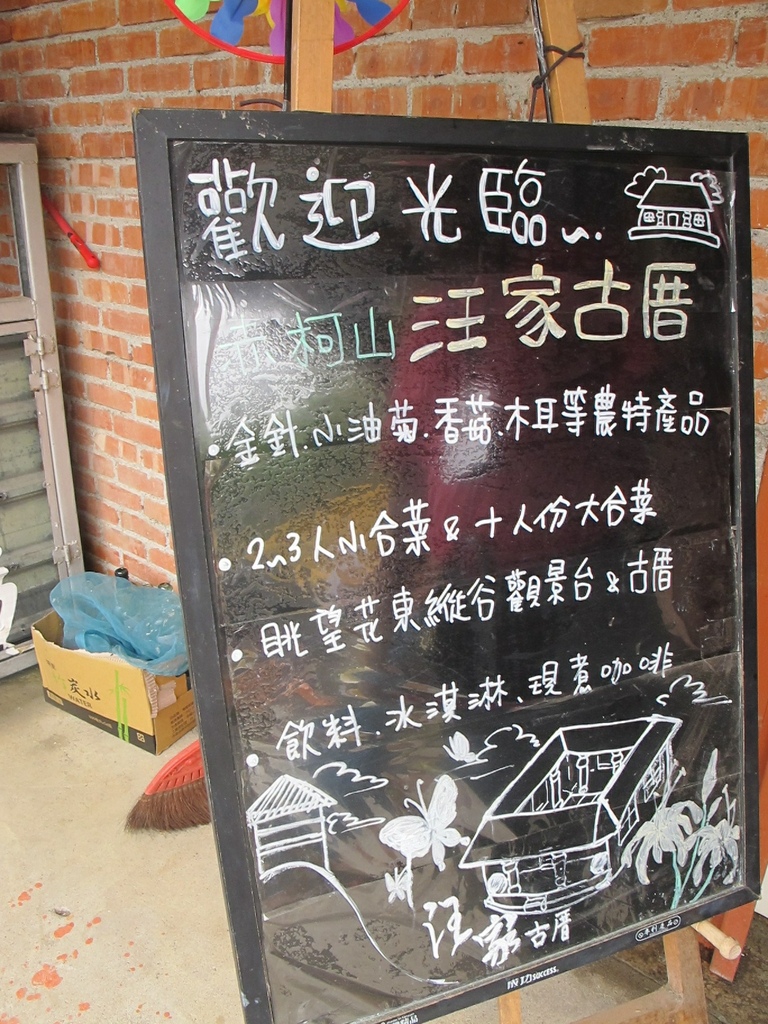 歡迎光臨~.
赤柯山 汪家古厝
• 金針.小油菊.香菇.木耳等農特產品
• 2~3人小合菜 & 十人份大合菜
• 眺望花東縱谷觀景台 & 古厝
• 飲料.冰淇淋、現煮咖啡
汪家古厝
成功 SUCCESS.
炭水
WATER